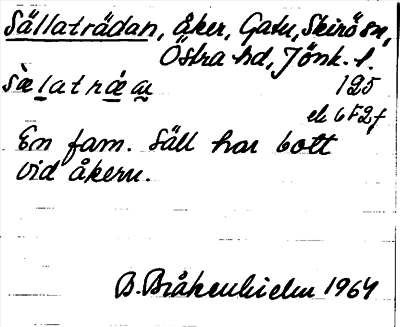 Sällaträdan, åker, Gatu, Skirö sn,
Östra hd, Jönk. l.
sä̀latræ̀a 125
ek 6F2f
En fam. Säll har bott
vid åkern.
B. Bråkenhielm 1964